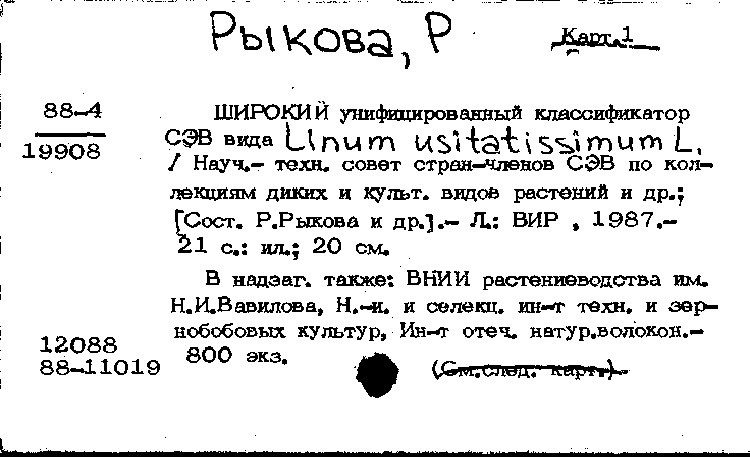 Рыкова, Р
Карт.1
88-4
19908
ШИРОКИЙ унифицированный классификатор
СЭВ вида Linum usitatissimum L.
/ Науч.- техн. совет стран-членов СЭВ по кол-
лекциям диких и культ. видов растений и др.;
[Сост. Р.Рыкова и др.].- Л.: ВИР , 1987.-
21 с.: ил.; 20 см.
В надзаг. также: ВНИИ растениеводства им.
Н.И.Вавилова, Н.-и. и селекц. ин-т техн. и зер-
нобобовых культур, Ин-т отеч. натур.волокон.-
800 экз.
12088
88-11019
(См.след. карт.)